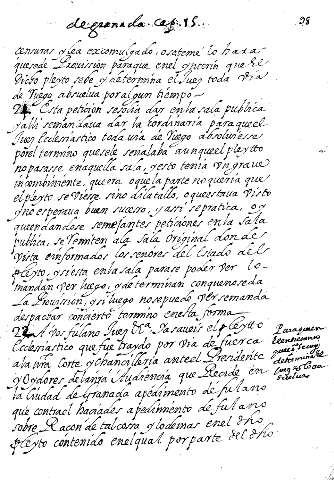 de granada. cap. 15.
98
censuras y sea excomulgado, o sateme lo haras
quese dé Provission paraque enel ynterin que el
dicho pleyto se be y determina el Juez toda via
de Juego absuelva por algun tiempo
Esta peticion se solia dar en la sala publica
y alli se mandava dar la ordinaria para que el
Juez Ecclesiastico toda via de Juego absolviesse
por el termino que se le señalaba aunque el pleytto
no passasse en aquella sala, y esto tenia un grave
inconbiniente, que era o que la parte no queria que
el pleyto se Viesse sino dilatallo, o que estava visto
y no esperava buen sucesso, y assi se pratica, que
quando dan semejantes peticiones en la sala
publica, se Remiten a la sala Original donde
Vista e informados los señores del Estado del
pleyto, y si está en la sala para se poder ver lo
mandan ver luego, y determinan como no se da
la Provission, y si luego no se puede ver se manda
despachar con cierto termino en esta forma
A Vos fulano Juez
Ecclesiastico que fue traydo por via de fuerca
a la nra. Corte y chancilleria ante el Presidente
y Oydores de la nra Audiencia que Reside en
la Ciudad de Granada a pedimento de fulano
que contra el haciades a pedimento de fulano
sobre Racon de tal cossa, y lo demas en el dho
pleyto contenido en el qual por parte del dho
Para que en